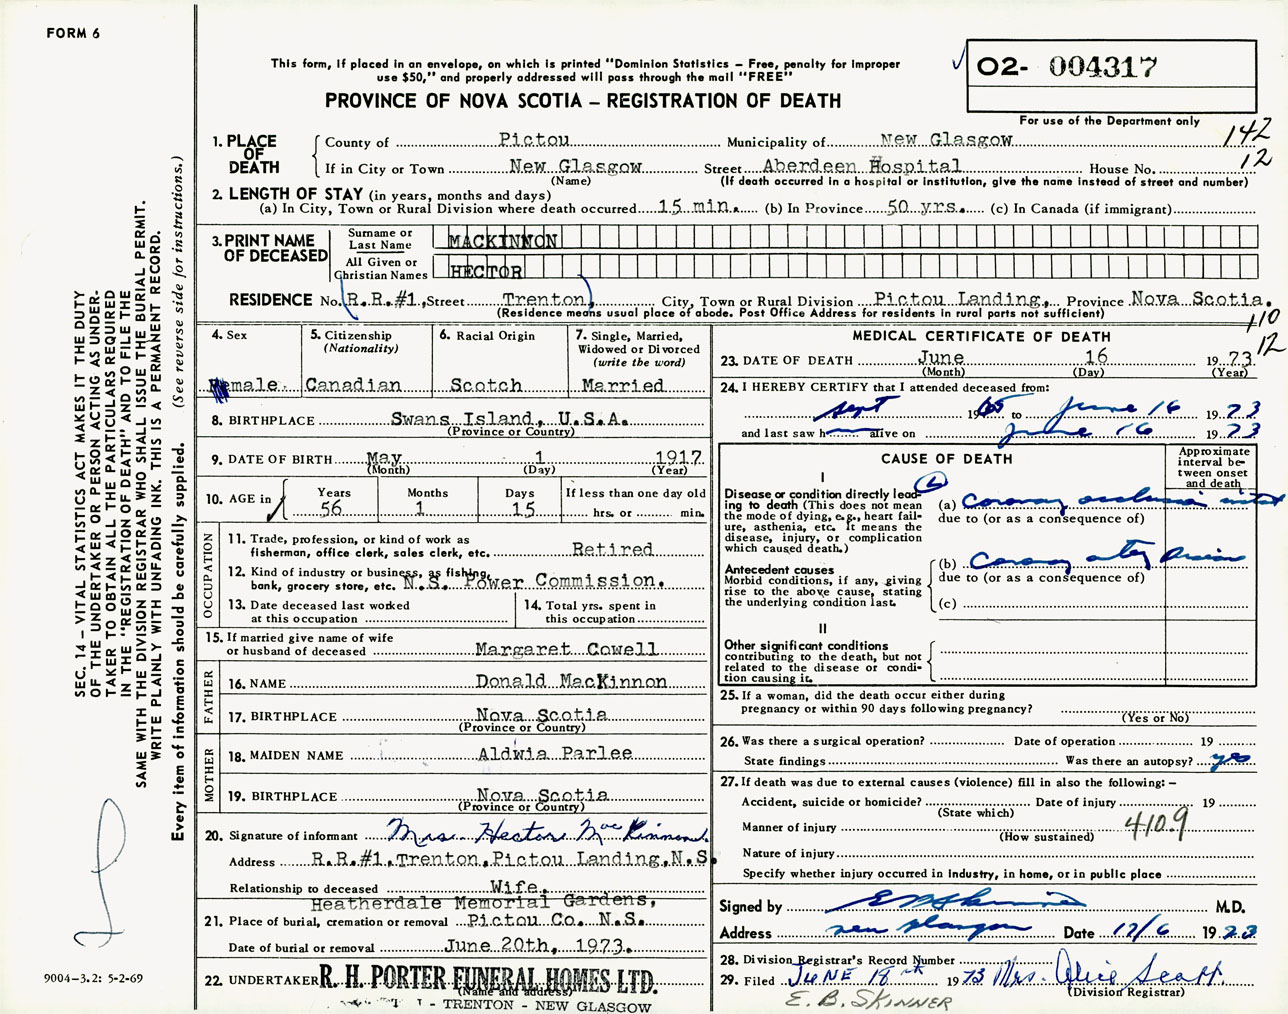 FORM 6
This form, if placed in an envelope, on which is printed "Dominion Statistics – Free, penalty for improper
use $50," and properly addressed will pass through the mail "FREE"
PROVINCE OF NOVA SCOTIA – REGISTRATION OF DEATH
O2- 004317
For use of the Department only
142
12
1. PLACE OF DEATH
County of Pictou Municipality of New Glasgow
If in City or Town New Glasgow Street Aberdeen Hospital House No.
(Name) (If death occurred in a hospital or institution, give the name instead of street and number)
2. LENGTH OF STAY (in years, months and days)
(a) In City, Town or Rural Division where death occurred 15 min. (b) In Province 50 yrs. (c) In Canada (if immigrant)
3. PRINT NAME OF DECEASED
Surname or Last Name MACKINNON
All Given or Christian Names HECTOR
RESIDENCE No. R.R.#1, Street Trenton City, Town or Rural Division Pictou Landing, Province Nova Scotia.
(Residence means usual place of abode. Post Office Address for residents in rural parts not sufficient)
110
12
4. Sex male
5. Citizenship (Nationality) Canadian
6. Racial Origin Scotch
7. Single, Married, Widowed or Divorced (write the word) Married
8. BIRTHPLACE Swans Island, U.S.A.
(Province or Country)
9. DATE OF BIRTH May 1 1917
(Month) (Day) (Year)
10. AGE in Years 56 Months 1 Days 15 If less than one day old hrs. or min.
OCCUPATION
11. Trade, profession, or kind of work as
fisherman, office clerk, sales clerk, etc. Retired
12. Kind of industry or business, as fishing,
bank, grocery store, etc. N.S. Power Commission.
13. Date deceased last worked at this occupation
14. Total yrs. spent in this occupation
15. If married give name of wife
or husband of deceased Margaret Cowell
FATHER
16. NAME Donald MacKinnon
17. BIRTHPLACE Nova Scotia
(Province or Country)
MOTHER
18. MAIDEN NAME Aldwia Parlee
19. BIRTHPLACE Nova Scotia
(Province or Country)
20. Signature of informant Mrs. Hector MacKinnon
Address R.R.#1, Trenton, Pictou Landing, N.S.
Relationship to deceased Wife.
Heatherdale Memorial Gardens,
21. Place of burial, cremation or removal Pictou Co. N.S.
Date of burial or removal June 20th, 1973.
22. UNDERTAKER R. H. PORTER FUNERAL HOMES LTD.
(Name and address)
- TRENTON - NEW GLASGOW
MEDICAL CERTIFICATE OF DEATH
23. DATE OF DEATH June 16 1973
(Month) (Day) (Year)
24. I HEREBY CERTIFY that I attended deceased from:
Sept 1965 to June 16 1973
and last saw h alive on June 16 1973
CAUSE OF DEATH
Approximate interval between onset and death
I
Disease or condition directly leading to death (This does not mean the mode of dying, e.g., heart failure, asthenia, etc. It means the disease, injury, or complication which caused death.)
(a) coronary occlusion
due to (or as a consequence of)
Antecedent causes
Morbid conditions, if any, giving rise to the above cause, stating the underlying condition last.
(b) Coronary artery disease
due to (or as a consequence of)
(c)
II
Other significant conditions
contributing to the death, but not related to the disease or condition causing it.
25. If a woman, did the death occur either during
pregnancy or within 90 days following pregnancy?
(Yes or No)
26. Was there a surgical operation? Date of operation 19
State findings Was there an autopsy? yes
27. If death was due to external causes (violence) fill in also the following: –
Accident, suicide or homicide? Date of injury 19
(State which)
Manner of injury 410.9
(How sustained)
Nature of injury
Specify whether injury occurred in industry, in home, or in public place
Signed by E B Skinner M.D.
Address New Glasgow Date 17/6 1973
28. Division Registrar's Record Number
29. Filed JUNE 18th 1973 Mrs. Alice Scott
(Division Registrar)
E. B. SKINNER
SEC. 14 – VITAL STATISTICS ACT MAKES IT THE DUTY
OF THE UNDERTAKER OR PERSON ACTING AS UNDER-
TAKER TO OBTAIN ALL THE PARTICULARS REQUIRED
IN THE "REGISTRATION OF DEATH" AND TO FILE THE
SAME WITH THE DIVISION REGISTRAR WHO SHALL ISSUE THE BURIAL PERMIT.
WRITE PLAINLY WITH UNFADING INK. THIS IS A PERMANENT RECORD.
Every item of information should be carefully supplied. (See reverse side for instructions.)
9004-3.2: 5-2-69